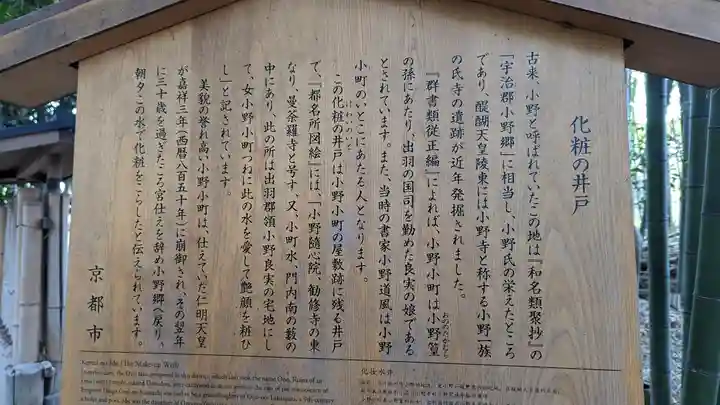 化粧の井戸
古来、小野と呼ばれていたこの地は『和名類聚抄』の
「宇治郡小野郷」に相当し、小野氏の栄えたところ
であり、醍醐天皇陵東には小野寺と称する小野一族
の氏寺の遺跡が近年発掘されました。
『群書類従正編』によれば、小野小町は小野篁
おののたかむら
の孫にあたり、出羽の国司を勤めた良実の娘である
とされています。また、当時の書家小野道風は小野
小町のいとこにあたる人となります。
この化粧の井戸は小野小町の屋敷跡に残る井戸
で、『都名所図絵』には、「小野随心院、勧修寺の東
なり、曼荼羅寺と号す、又、小町水、門内南の薮の
中にあり、此の所は出羽郡領小野良実の宅地にし
て、女小野小町つねに此の水を愛して艶顔を粧ひ
し」と記されています。
美貌の誉れ高い小野小町は、仕えていた仁明天皇
が嘉祥三年(西暦八百五十年)に崩御され、その翌年
に三十歳を過ぎたころ宮仕えを辞め小野郷へ戻り、
朝夕この水で化粧をこらしたと伝えられています。
京都市
化妆水井